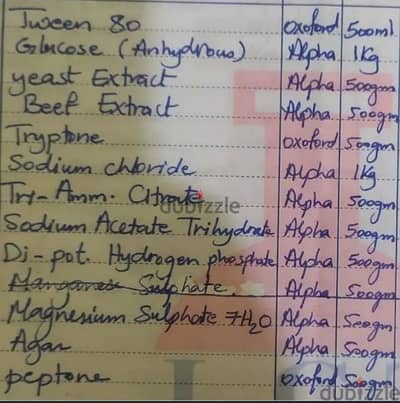 Tween 80 oxoford 500ml
Glucose (Anhydrous) Alpha 1Kg
yeast Extract Alpha 500gm
Beef Extract Alpha 500gm
Tryptone oxoford 500gm
Sodium chloride Alpha 1Kg
Tri-Amm. Citrate Alpha 500gm
dubizzle
Sodium Acetate Trihydrate Alpha 500gm
Di-pot. Hydrogen phosphate Alpha 500gm
Manganese Sulphate. Alpha 500gm
Magnesium Sulphate 7H2O Alpha 500gm
Agar Alpha 500gm
peptone oxoford 500gm
dubizzle